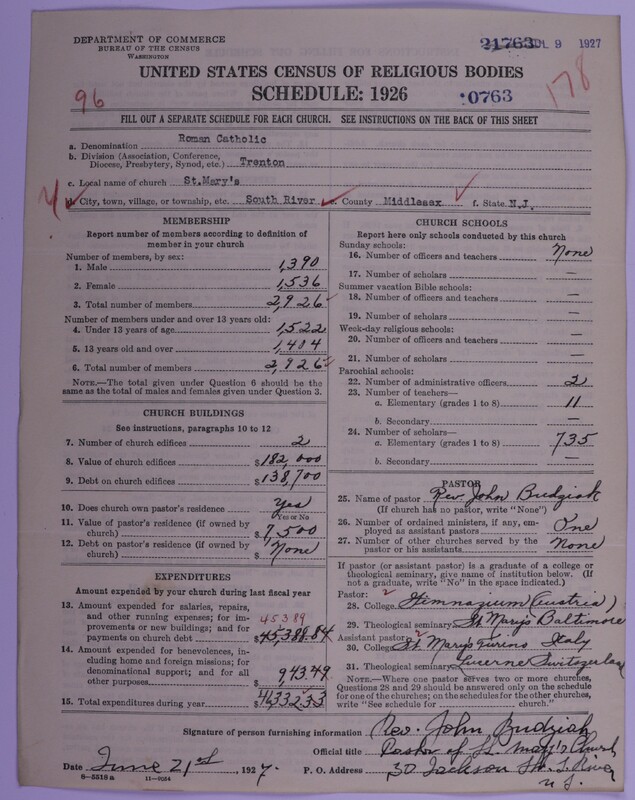 DEPARTMENT OF COMMERCE
BUREAU OF THE CENSUS
WASHINGTON
21763 JUL 9 1927
UNITED STATES CENSUS OF RELIGIOUS BODIES
SCHEDULE: 1926
96
0763
178
FILL OUT A SEPARATE SCHEDULE FOR EACH CHURCH. SEE INSTRUCTIONS ON THE BACK OF THIS SHEET
a. Denomination Roman Catholic
b. Division (Association, Conference, Diocese, Presbytery, Synod, etc.) Trenton
c. Local name of church St.Mary's
d. City, town, village, or township, etc. South River e. County Middlesex f. State N.J.
MEMBERSHIP
Report number of members according to definition of
member in your church
Number of members, by sex:
1. Male 1,390
2. Female 1,536
3. Total number of members 2,926
Number of members under and over 13 years old:
4. Under 13 years of age 1,522
5. 13 years old and over 1,404
6. Total number of members 2,926
NOTE.—The total given under Question 6 should be
same as the total of males and females given under Question 3.
CHURCH BUILDINGS
See instructions, paragraphs 10 to 12
7. Number of church edifices 2
8. Value of church edifices $182,000
9. Debt on church edifices $138,700
10. Does church own pastor's residence? Yes
Yes or No
11. Value of pastor's residence (if owned by
church) $7,500
12. Debt on pastor's residence (if owned by
church) $None
EXPENDITURES
Amount expended by your church during last fiscal year
13. Amount expended for salaries, repairs,
and other running expenses; for im-
provements or new buildings; and for
payments on church debt 45389
$45,388.84
14. Amount expended for benevolences,
including home and foreign missions; for
denominational support; and for all
other purposes $943.49
15. Total expenditures during year $
CHURCH SCHOOLS
Report here only schools conducted by this church
Sunday schools:
16. Number of officers and teachers None
17. Number of scholars —
Summer vacation Bible schools:
18. Number of officers and teachers —
19. Number of scholars —
Week-day religious schools:
20. Number of officers and teachers —
21. Number of scholars —
Parochial schools:
22. Number of administrative officers 2
23. Number of teachers—
a. Elementary (grades 1 to 8) 11
b. Secondary —
24. Number of scholars—
a. Elementary (grades 1 to 8) 735
b. Secondary —
PASTOR
25. Name of pastor Rev. John Budziak
(If church has no pastor, write "None")
26. Number of ordained ministers, if any, em-
ployed as assistant pastors One
27. Number of other churches served by the
pastor or his assistants None
If pastor (or assistant pastor) is a graduate of a college or
theological seminary, give name of institution below. (If
not a graduate, write "No" in the space indicated.)
Pastor: 2
28. College Gimnazium (Austria)
29. Theological seminary St Mary's Baltimore
Assistant pastor: 2
30. College St Mary's Turino Italy
31. Theological seminary Lucerne Switzerland
NOTE.—Where one pastor serves two or more churches,
Questions 28 and 29 should be answered only on the schedule
for one of the churches; on the schedules for the other churches,
write "See schedule for church."
Signature of person furnishing information Rev. John Budziak
Official title Pastor of St. Mary's Church
Date June 21st, 1927. P. O. Address 30 Jackson St. S. River
N J.
8-5518a 11-9054